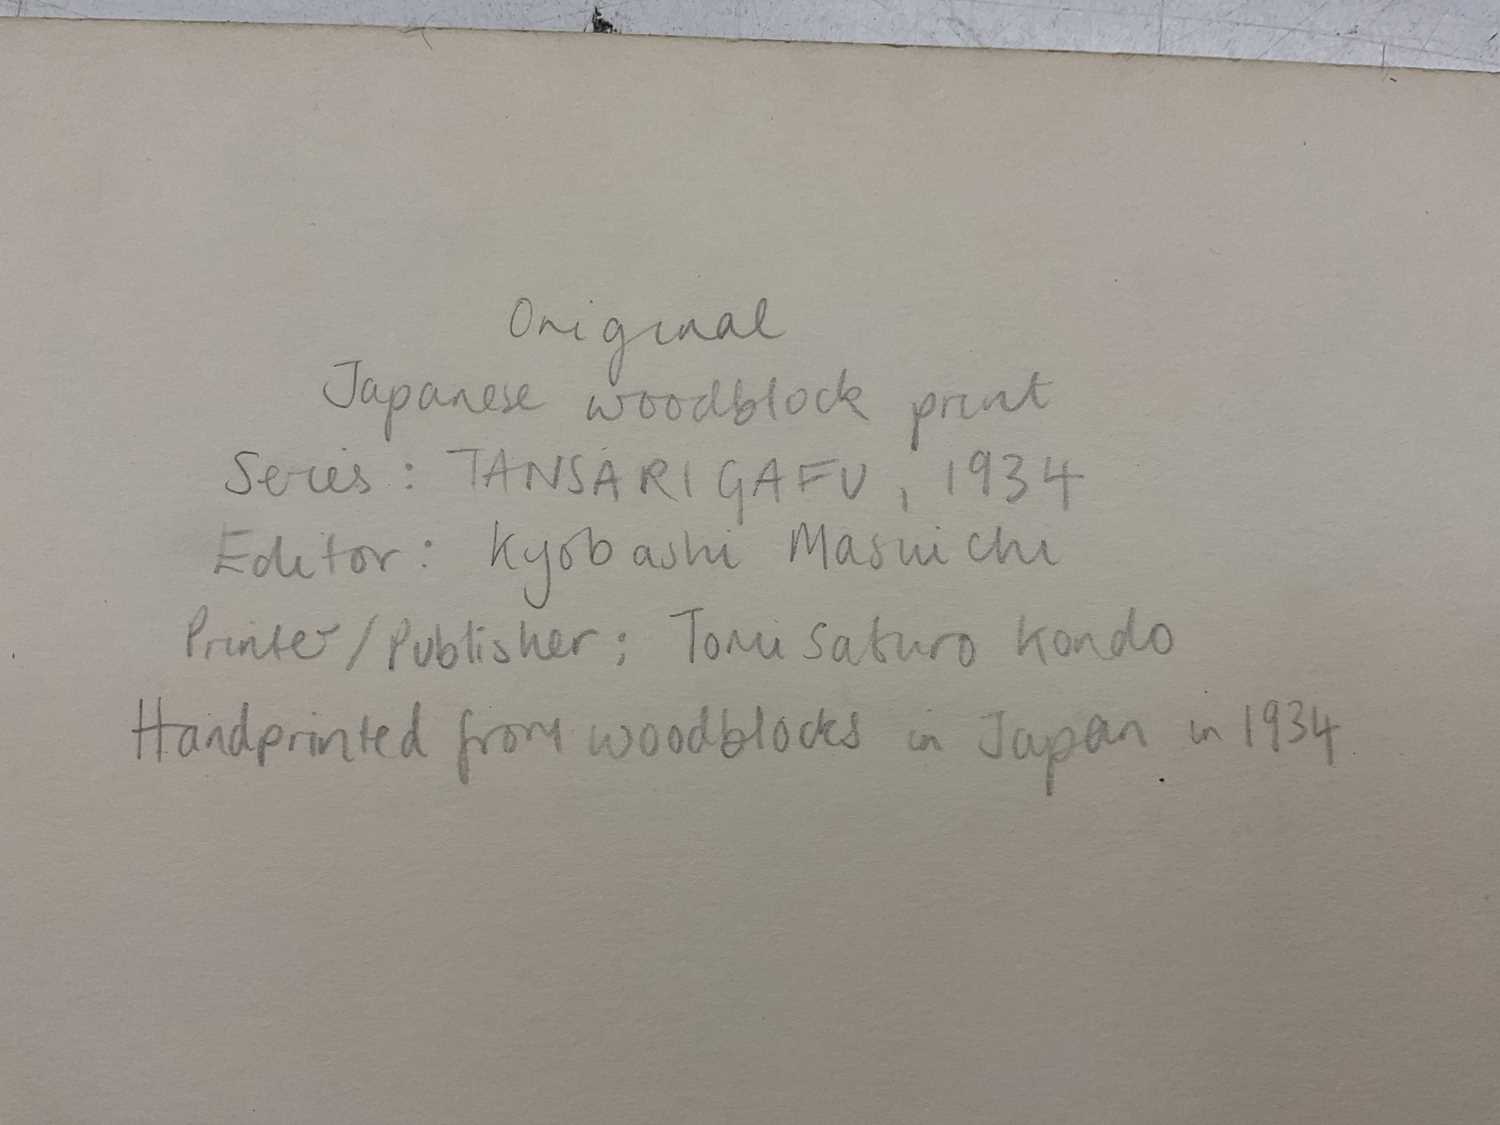 Original
Japanese woodblock print
Series: TANSARIGAFU, 1934
Editor: Kyobashi Masuichi
Printer/Publisher; Tomisaturo Kondo
Handprinted from woodblocks in Japan in 1934